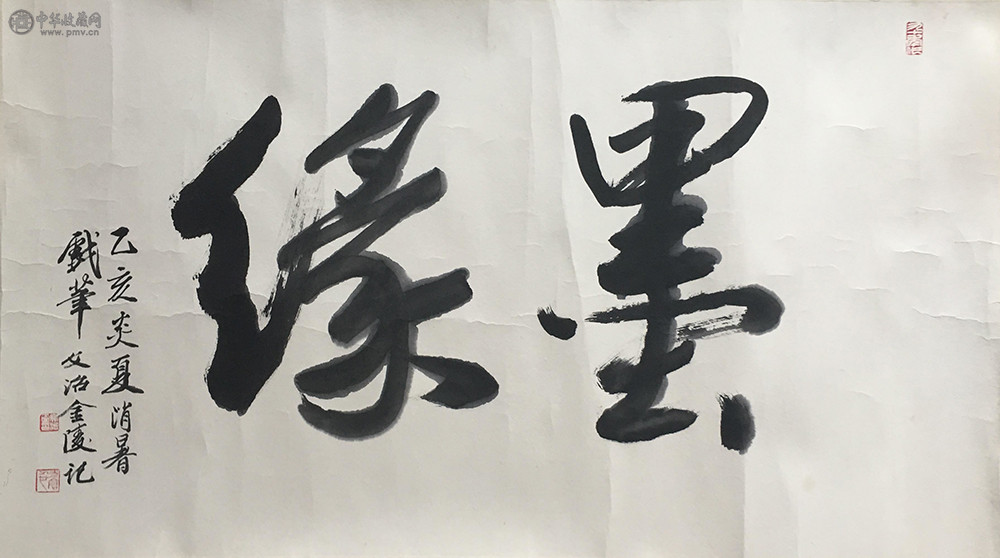 中华收藏网
www.pmv.cn
墨缘
乙亥炎夏消暑
戲筆文治金陵记